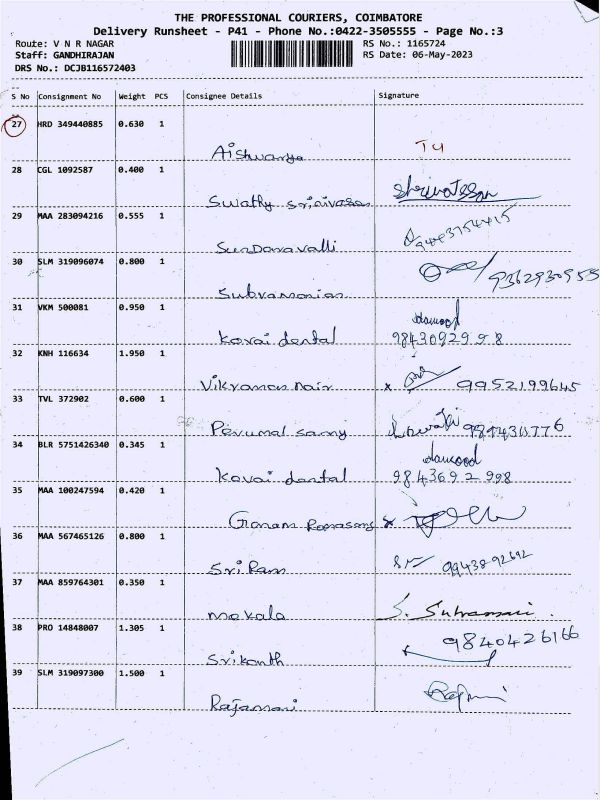 THE PROFESSIONAL COURIERS, COIMBATORE
Delivery Runsheet - P41 - Phone No.:0422-3505555 - Page No.:3
Route: V N R NAGAR
RS No.: 1165724
Staff: GANDHIRAJAN
RS Date: 06-May-2023
DRS No.: DCJB116572403
S No Consignment No Weight PCS Consignee Details Signature
27 HRD 349440885 0.630 1
Aishwarya
28 CGL 1092587 0.400 1
Swathy Srinivasan
29 MAA 283094216 0.555 1
Sundaravalli
30 SLM 319096074 0.800 1
Subramanian 9362930955
31 VKM 500081 0.950 1
Kovai dental 9843092998
32 KNH 116634 1.950 1
Vikraman Nair 9952199645
33 TVL 372902 0.600 1
Perumal samy
34 BLR 5751426340 0.345 1
Kovai dental 9843692998
35 MAA 100247594 0.420 1
36 MAA 567465126 0.800 1
Sri Ram 9943892692
37 MAA 859764301 0.350 1
mekala
38 PRO 14848007 1.305 1
9840426166
Srikanth
39 SLM 319097300 1.500 1
Rajamani